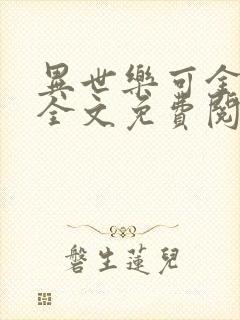 異世樂可全
全文免費閱
磐生蓮兒